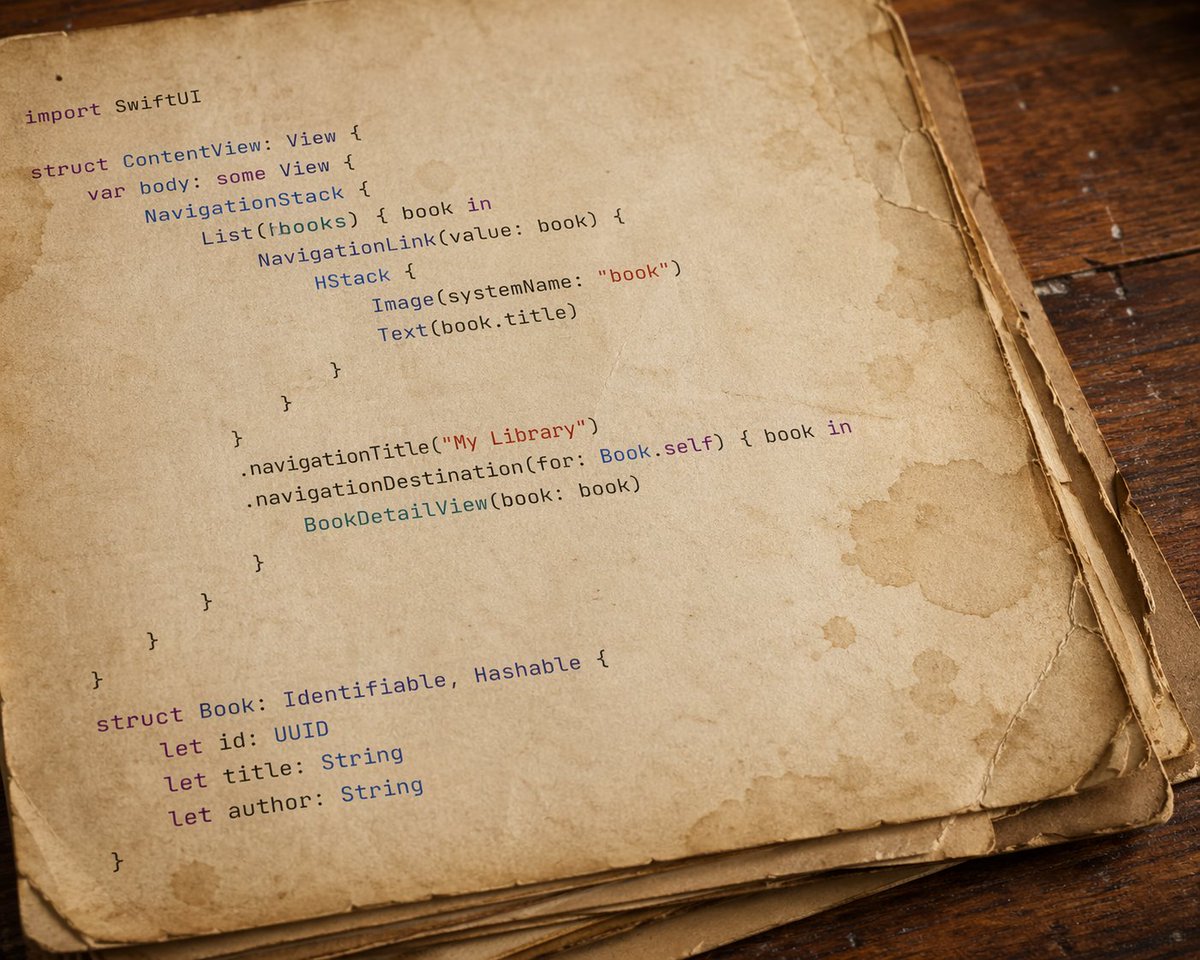 import SwiftUI
struct ContentView: View {
    var body: some View {
        NavigationStack {
            List(books) { book in
                NavigationLink(value: book) {
                    HStack {
                        Image(systemName: "book")
                        Text(book.title)
                    }
                }
            }
            .navigationTitle("My Library")
            .navigationDestination(for: Book.self) { book in
                BookDetailView(book: book)
            }
        }
    }
}
struct Book: Identifiable, Hashable {
    let id: UUID
    let title: String
    let author: String
}